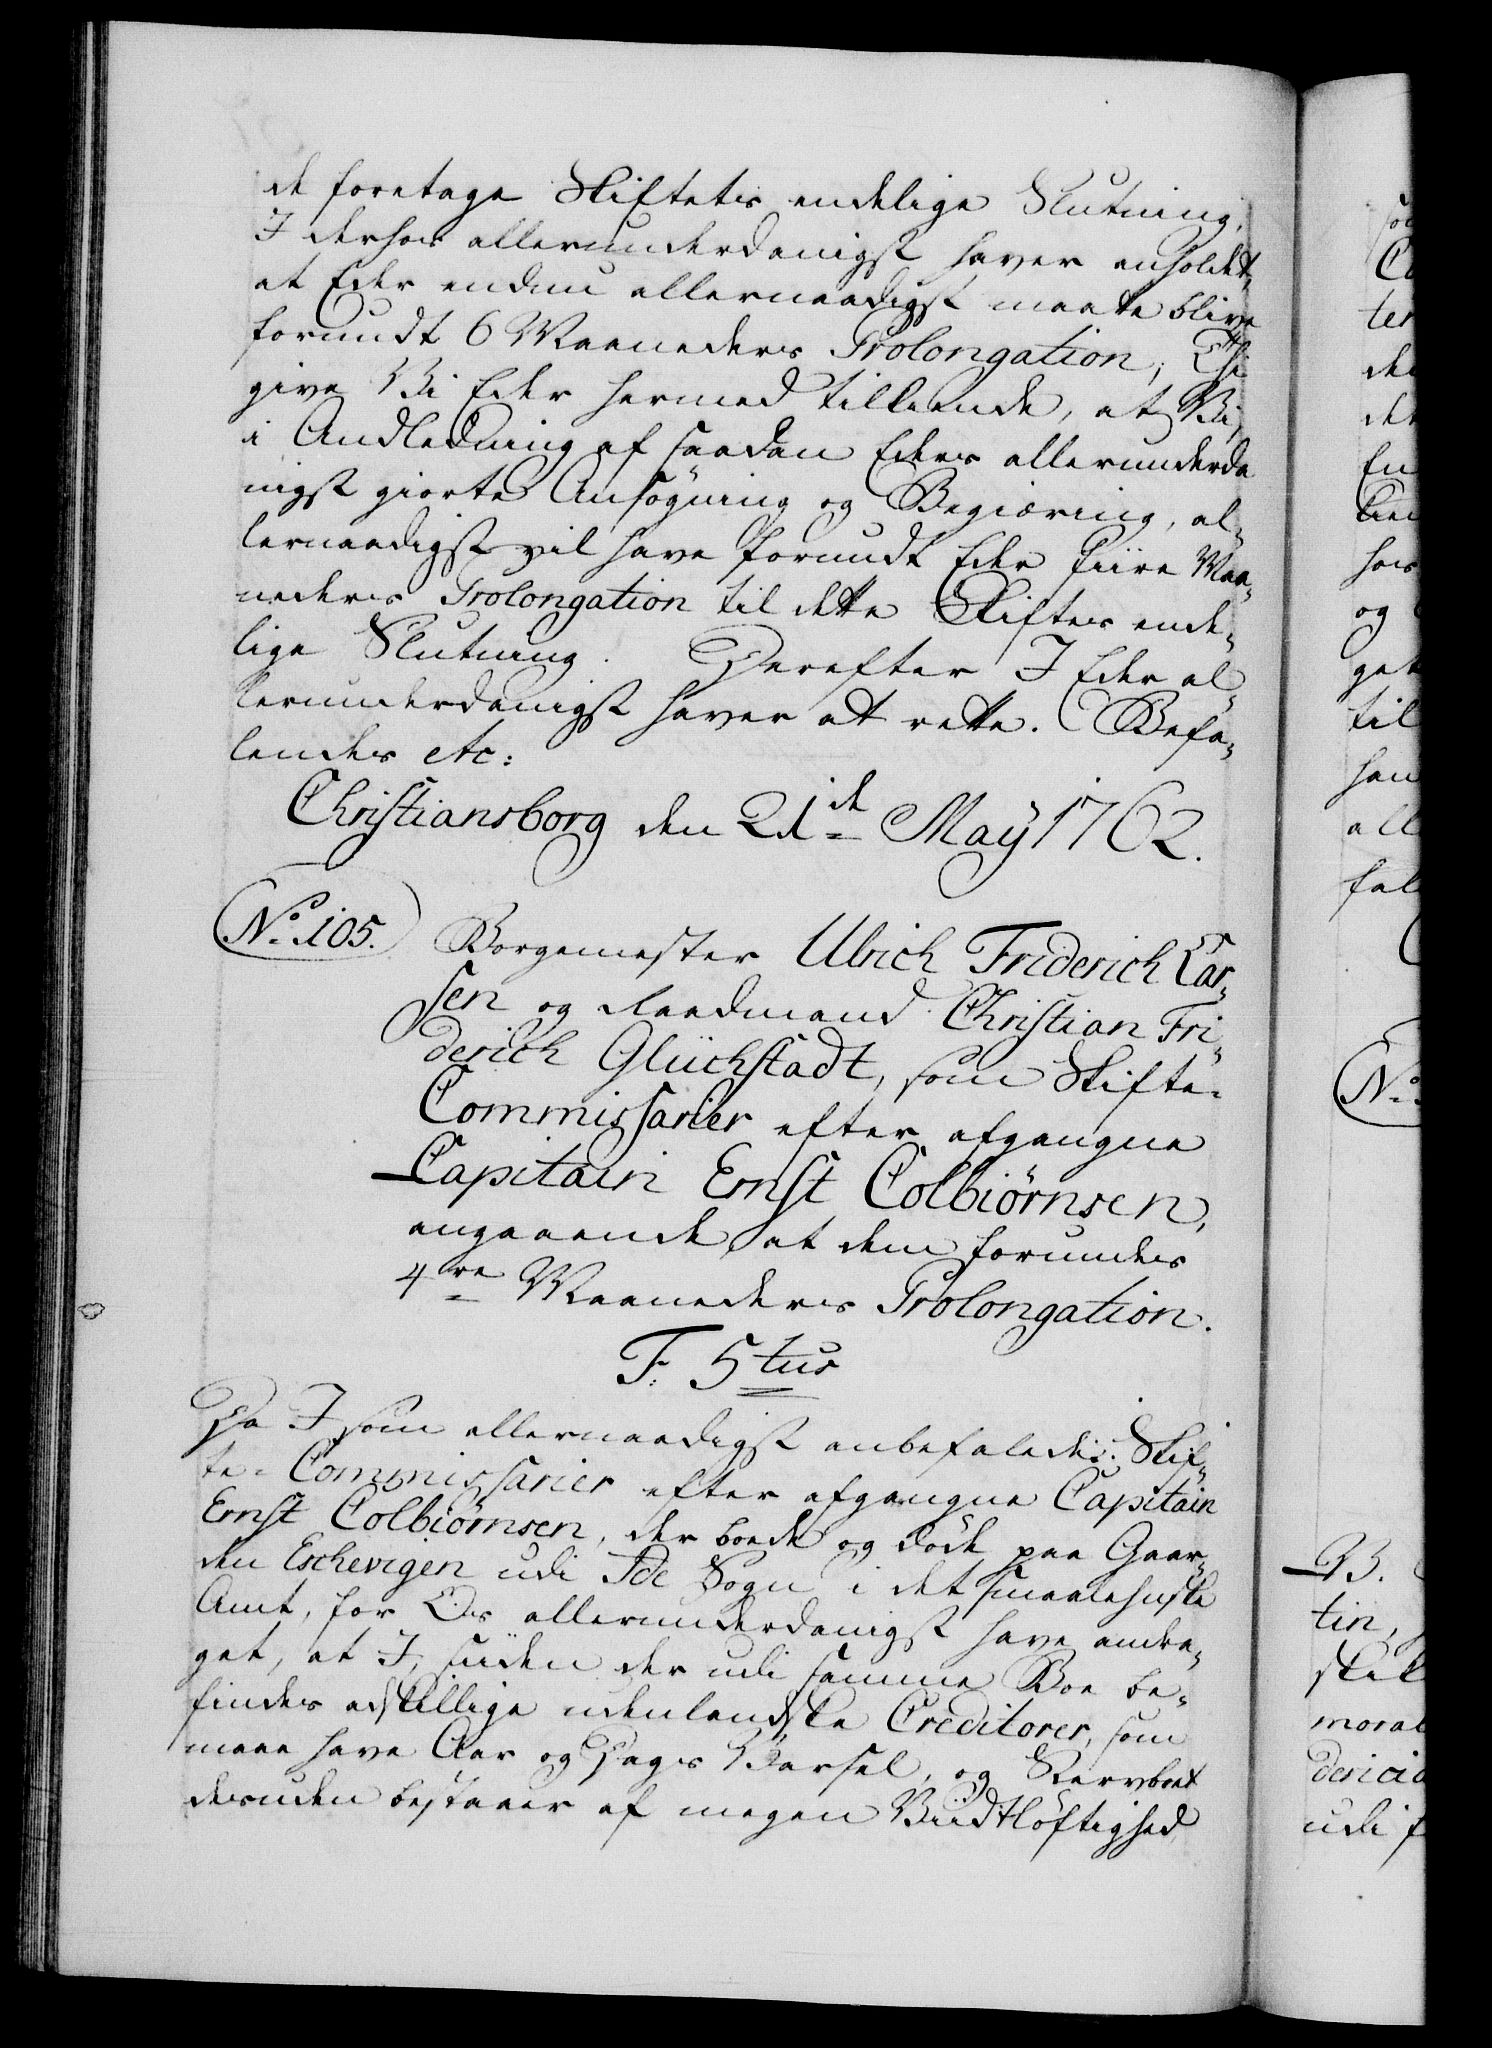 de foretage Skiftets endelige Slutning,
I derhos allerunderdanigst haver anholdet,
at Eder endnu allernaadigst maatte blive
forundt 6 Maaneders Prolongation; Thi
give Vi Eder hermed tilkiende, at Vi,
i Andledning af saadan Eders allerunderda
nigst giorte Ansøgning og Begiæring, al-
lernaadigst vil have forundt Eder fiire Maa-
neders Prolongation til dette Skiftes ende-
lige Slutning. Derefter I Eder al-
lerunderdanigst haver at rette. Befa-
lendes etc:
Christiansborg den 21de May 1762.
No 105. Borgemester Ulrich Friderich Lar-
sen og Raadmand Christian Fri-
derich Glückstadt, som Skifte-
Commissarier efter afgangne
Capitain Ernst Colbiørnsen,
angaaende, at dem forundes
4re Maaneders Prolongation.
F. 5tus
Da I som allernaadigst anbefalede Skif-
te-Commissarier efter afgangne Capitain
Ernst Colbiørnsen, der boede og døde paa Gaar-
den Eschevigen udi Ide Sogn i det smaalehnske
Amt, for Os allerunderdanigst have andra-
get, at I, siiden der udi samme Boe be-
findes adskillige udenlandske Creditorer, som
maae have Aar og Dags Varsel, og Stervboet
desuden bestaaer af megen Viidtløftighed